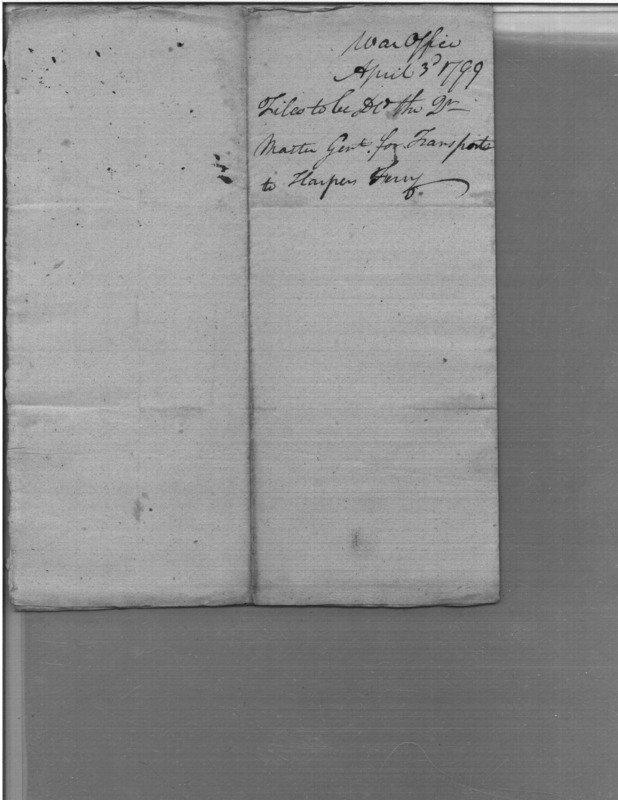 War Office
April 3d 1799
Files to be Dd the Qr
Master Genl. for Transports
to Harpers Ferry